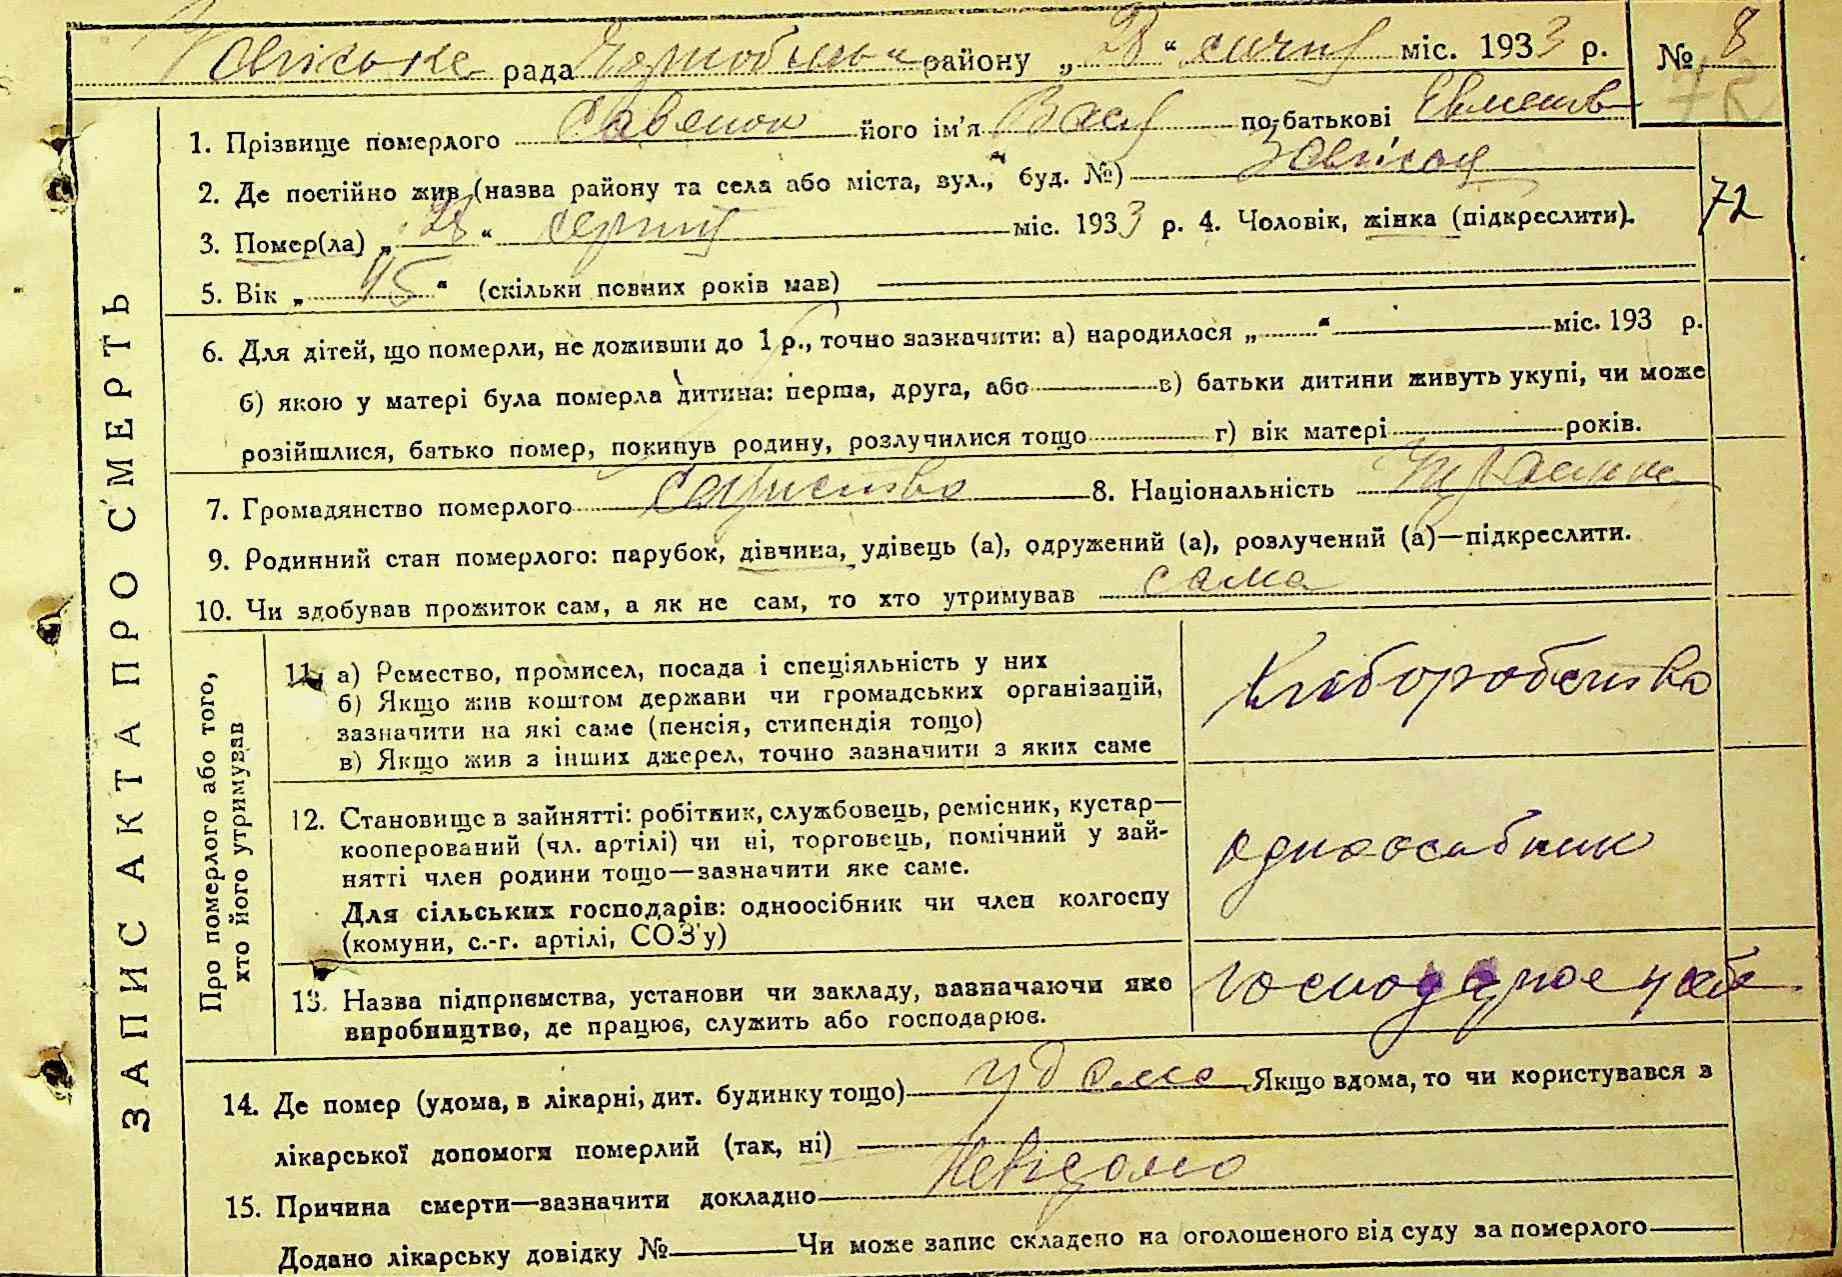 рада району „28“ січня міс. 1933 р. № 8
72
1. Прізвище померлого Савенок його ім'я по батькові
2. Де постійно жив (назва району та села або міста, вул., буд. №)
3. Помер(ла) „28“ міс. 1933 р. 4. Чоловік, жінка (підкреслити).
72
5. Вік „45“ (скільки повних років мав)
6. Для дітей, що померли, не доживши до 1 р., точно зазначити: а) народилося „ “ міс. 193 р.
б) якою у матері була померла дитина: перша, друга, або в) батьки дитини живуть укупі, чи може
розійшлися, батько помер, покинув родину, розлучилися тощо г) вік матері років.
7. Громадянство померлого 8. Національність
9. Родинний стан померлого: парубок, дівчина, удівець (а), одружений (а), розлучений (а)—підкреслити.
10. Чи здобував прожиток сам, а як не сам, то хто утримував сама
ЗАПИС АКТА ПРО СМЕРТЬ
Про померлого або того,
хто його утримував
11. а) Ремество, промисел, посада і спеціяльність у них
б) Якщо жив коштом держави чи громадських організацій,
зазначити на які саме (пенсія, стипендія тощо)
в) Якщо жив з інших джерел, точно зазначити з яких саме
Хліборобство
12. Становище в зайнятті: робітник, службовець, ремісник, кустар—
кооперований (чл. артілі) чи ні, торговець, помічний у зай-
нятті член родини тощо—зазначити яке саме.
Для сільських господарів: одноосібник чи член колгоспу
(комуни, с.-г. артілі, СОЗ'у)
одноосибник
13. Назва підприємства, установи чи закладу, зазначаючи яке
виробництво, де працює, служить або господарює.
14. Де помер (удома, в лікарні, дит. будинку тощо) удома Якщо вдома, то чи користувався з
лікарської допомоги померлий (так, ні)
15. Причина смерти—зазначити докладно Невідомо
Додано лікарську довідку № Чи може запис складено на оголошеного від суду за померлого